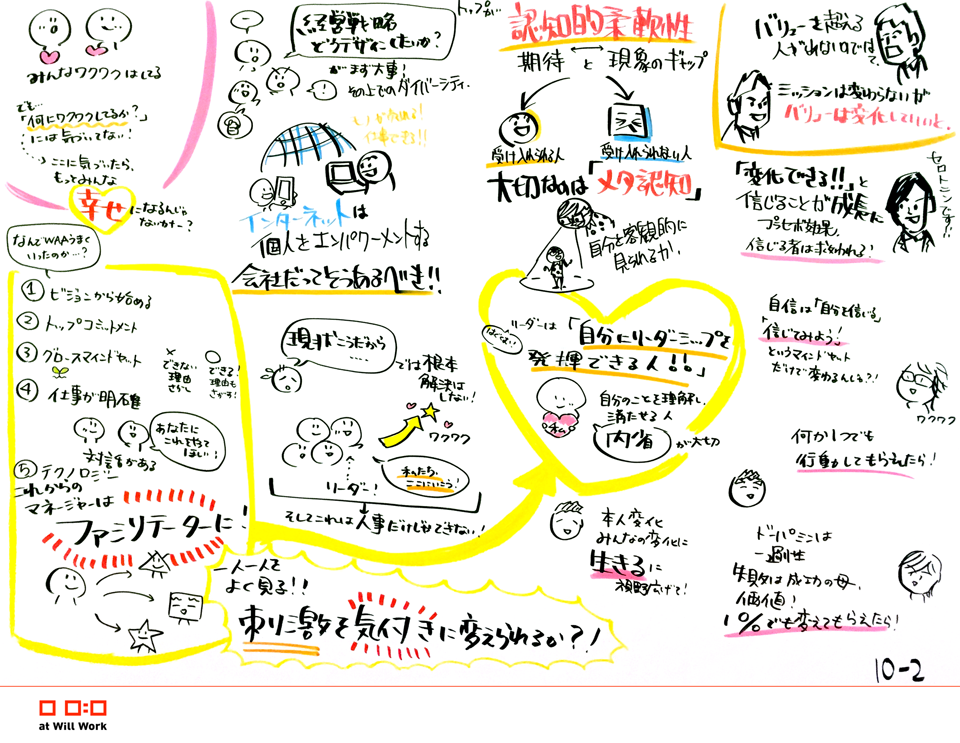 みんなワクワクはしてる
でも…
「何にワクワクしてるか?」
には気づいてない!
ここに気づいたら、
もっとみんな
幸せになるんじゃ
ないかなー?
なんでWAAうまく
いったのか…?
① ビジョンから始める
② トップコミットメント
③ グロースマインドセット
× できない理由さがし
○ できる!理由もさがす!
④ 仕事が明確
対話がある
あなたに
これをやって
ほしい!
⑤ テクノロジー
これからの
マネージャーは
ファシリテーターに!
トップが…
経営戦略
どうデザインしたいか?
がまず大事!
その上でのダイバーシティ
仕事できる!!
インターネットは
個人をエンパワーメントする
会社だってそうあるべき!!
現状こうだから……
では根本
解決は
しない!
ワクワク
リーダー!
私たち、
ここにいこう!
そしてこれは人事だけじゃできない!
一人一人を
よく見る!!
刺激を気付きに変えられるか?!
認知的柔軟性
期待 ←→ と 現象のギャップ
受け入れられる人
受け入れられない人
大切なのは「メタ認知」
自分を客観的に
見られるか
リーダーは
「自分にリーダーシップを
発揮できる人!!」
自分のことを理解し、
満たせる人
内省 が大切
本人変化
みんなの変化に
生きるに
視野広げて!
バリューを超える
人がれないのでは
て、
ミッションは変わらないが
バリューは変化していいと。
「変化できる!!」と
信じることが成長に
プラセボ効果。
信じる者は救われる!
セロトニンです!!
自信は「自分を信じる」
信じてみよう!
というマインドセット
だけで変わるんじゃ?!
ワクワク
何か1つでも
行動してもらえたら!
ドーパミンは
一過性
失敗は成功の母、
価値!
1%でも変えてもらえたら!
10-2
at Will Work